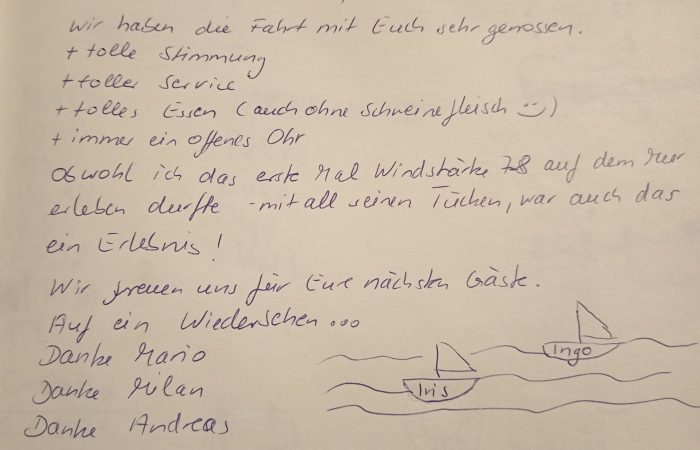 Wir haben die Fahrt mit Euch sehr genossen.
+ tolle Stimmung
+ toller Service
+ tolles Essen (auch ohne Schweinefleisch :-))
+ immer ein offenes Ohr
Obwohl ich das erste Mal Windstärke 78 auf dem Meer
erleben durfte - mit all seinen Tücken, war auch das
ein Erlebnis!
Wir freuen uns für Eure nächsten Gäste.
Auf ein Wiedersehen...
Danke Mario
Danke Milan
Danke Andreas
Iris
Ingo